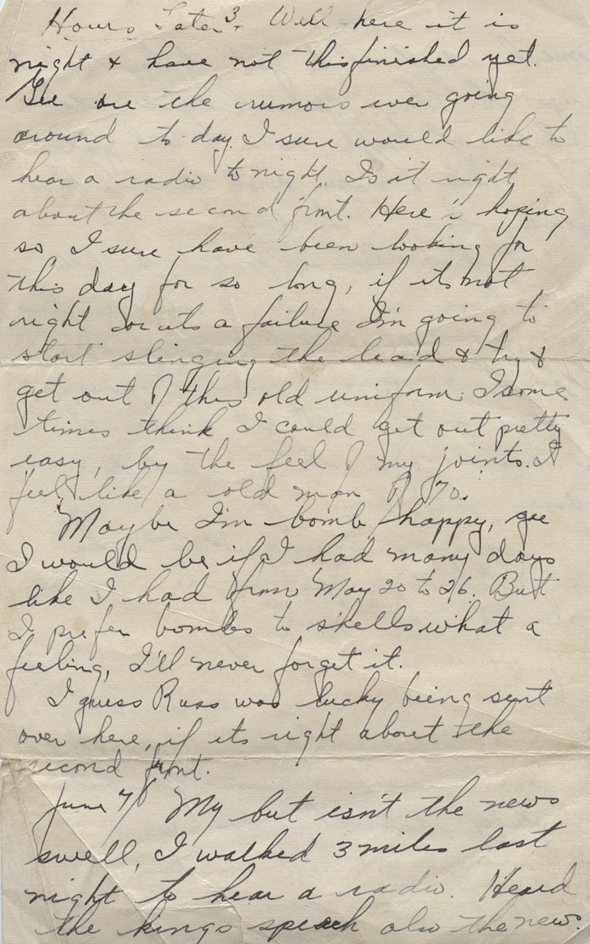 Hours Later 3. Well here it is
night & have not this finished yet.
Gee are the rumors ever going
around to-day. I sure would like to
hear a radio to night. Is it right
about the second front. Here's hoping
so I sure have been looking for
this day for so long, if its not
right or its a failure I'm going to
start slinging the lead & try &
get out of this old uniform. I some
times think I could get out pretty
easy, by the feel of my joints. I
feel like a old man of 70.
Maybe I'm bomb happy, gee
I would be if I had many days
like I had from May 20 to 26. But
I prefer bombs to shells what a
feeling, I'll never forget it.
I guess Russ was lucky being sent
over here, if its right about the
second front.
June 7/ My but isn't the news
swell, I walked 3 miles last
night to hear a radio. Heard
the kings speach also the news.